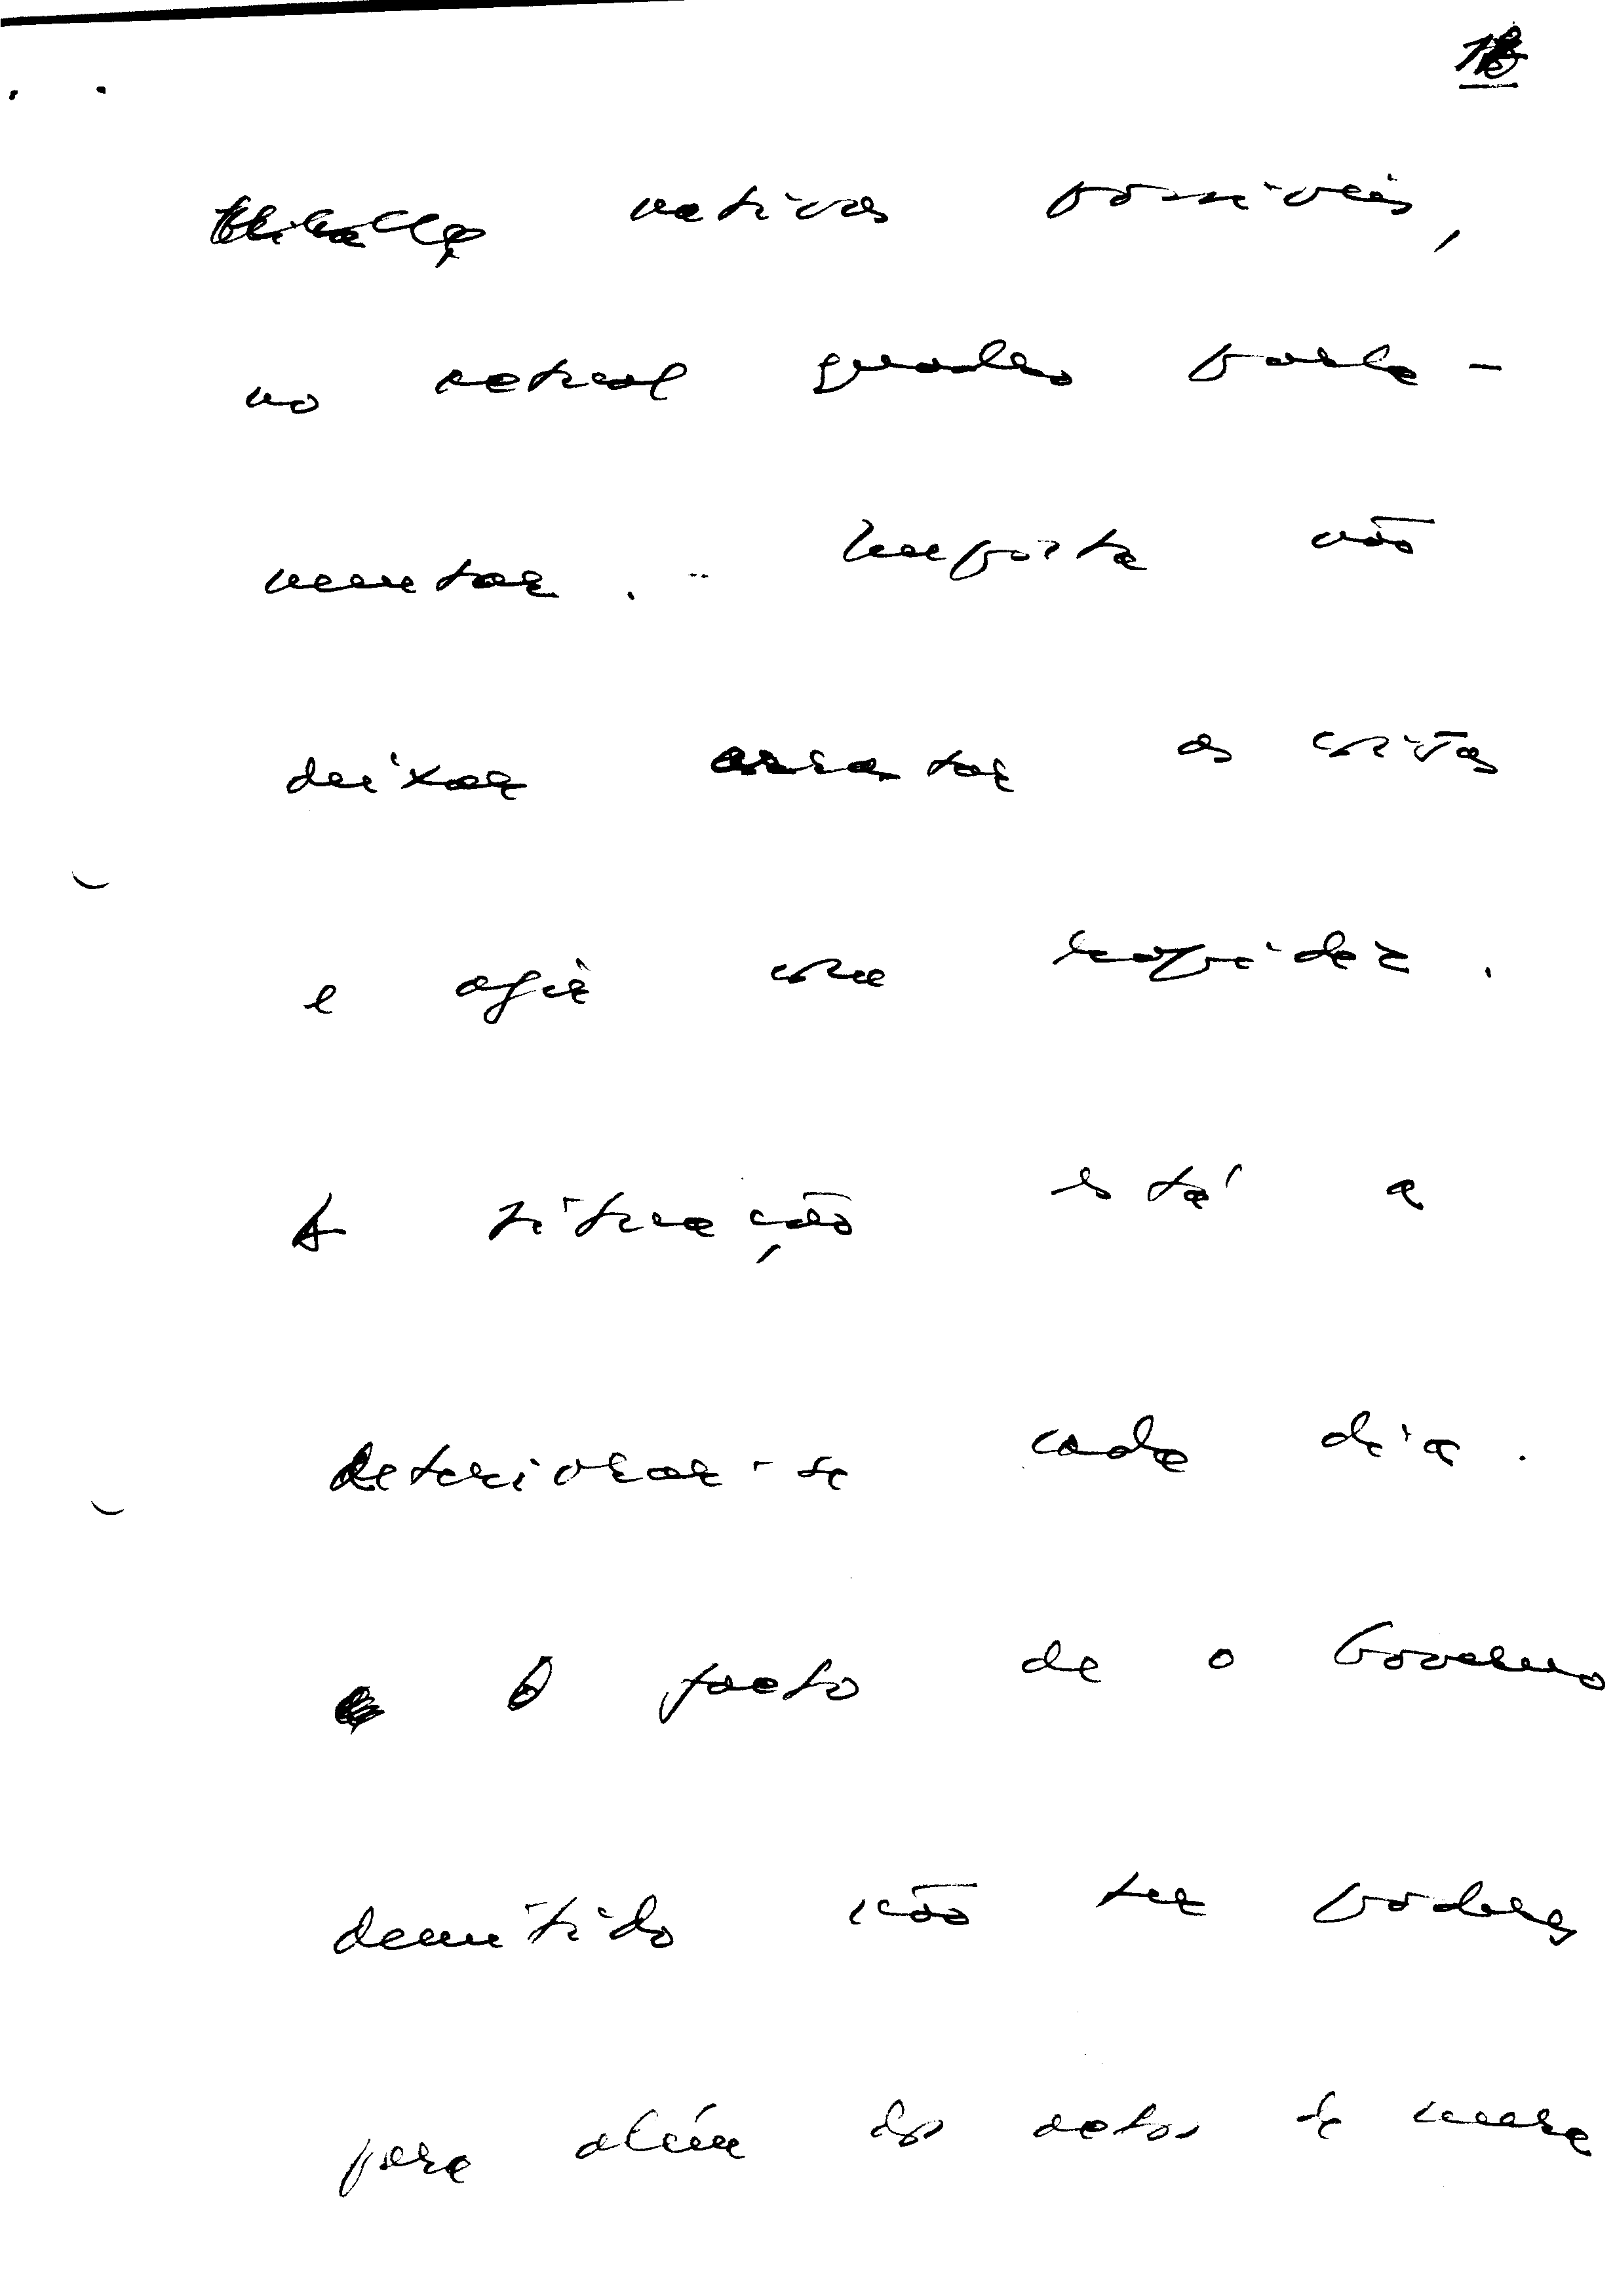 nativas possíveis,
no actual quadro parla-
mentar. - Importa não
deixar arrastar as coisas
e agir com rapidez.
A situação está a
deteriorar-se cada dia.
O facto de o Governo
demitido não ter poderes
para além dos actos de mera